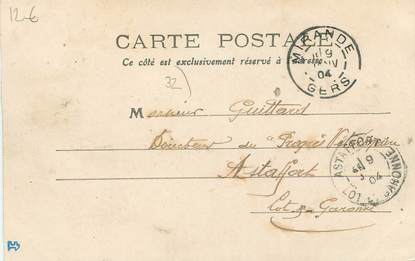 12-6
CARTE POSTALE
Ce côté est exclusivement réservé à l'adresse
MIRANDE
9
04
GERS
32
Monsieur Guittard
Directeur du "Progrès
Astaffort
Lot-&-Garonne
9
04
LOT
GARONNE